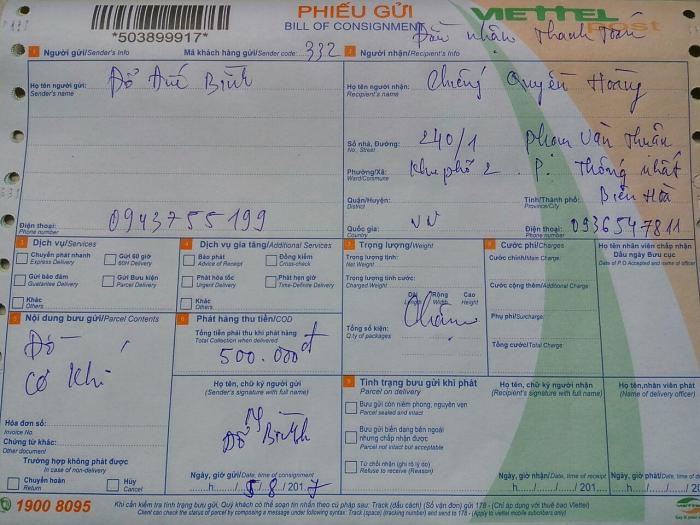 PHIẾU GỬI
BILL OF CONSIGNMENT
VIETTEL
post
*503899917*
Đầu nhận Thanh Toán
1 Người gửi/Sender's Info
Mã khách hàng gửi/Sender code: 332
2 Người nhận/Recipient's Info
Họ tên người gửi:
Sender's name
Đỗ Đức Bình
Họ tên người nhận:
Recipient's name
Quyền Hoàng
Số nhà, Đường:
No., Street
240/1 Phạm Văn Thuận
Phường/Xã:
Ward/Commune
Khu phố 2 P. Thống nhất
Quận/Huyện:
District
Tỉnh/Thành phố:
Province/City
Biên Hòa
Điện thoại:
Phone number
0943755199
Quốc gia:
Country
VN
Điện thoại:
Phone number
0936547811
3 Dịch vụ/Services
Chuyển phát nhanh
Express Delivery
Gửi 60 giờ
60H Delivery
Gửi bảo đảm
Guarantee Delivery
Gửi Bưu kiện
Parcel Delivery
Khác
Others
4 Dịch vụ gia tăng/Additional Services
Báo phát
Advice of Receipt
Đồng kiểm
Cross-check
Phát hỏa tốc
Urgent Delivery
Phát hẹn giờ
Time-Define Delivery
Khác
Others
7 Trọng lượng/Weight
Trọng lượng tịnh:
Net Weight
Trọng lượng tính cước:
Charged Weight
Dài
Length
Rộng
Width
Cao
Height
Tổng số kiện:
Q.ty of packages
8 Cước phí/Charges
Cước chính/Main Charge:
Cước cộng thêm/Additional Charge:
Phụ phí/Surcharge:
Tổng cước/Total Charge:
Họ tên nhân viên chấp nhận
Dấu ngày Bưu cục
Date of P.O Accepted and name of officer
5 Nội dung bưu gửi/Parcel Contents
Đồ
Cơ Khí
Hóa đơn số:
Invoice No.
Chứng từ khác:
Other document
Trường hợp không phát được
In case of non-delivery
Chuyển hoàn
Return
Hủy
Cancel
6 Phát hàng thu tiền/COD
Tổng tiền phải thu khi phát hàng
Total Collection when delivered
500.000đ
Họ tên, chữ ký người gửi
(Sender's signature with full name)
Đỗ Bình
Ngày, giờ gửi/Date, time of consignment
h 5/8/2017
9 Tình trạng bưu gửi khi phát
Parcel on delivery
Bưu gửi còn niêm phong, nguyên vẹn
Parcel sealed and intact
Bưu gửi biến dạng bên ngoài
nhưng chấp nhận được
Parcel not intact but acceptable
Từ chối nhận (ghi rõ lý do)
Refuse to receive (Reason)
Họ tên, chữ ký người nhận
(Recipient's signature with full name)
Ngày, giờ nhận/Date, time of receipt
h / /201
Họ tên, nhân viên phát
(Name of delivery officer)
Ngày, giờ phát/Date, time of
h / /201
1900 8095
Khi cần kiểm tra tình trạng bưu gửi, Quý khách có thể soạn tin nhắn theo cú pháp sau: Track (dấu cách) (Số vận đơn) gửi 178 - (Chỉ áp dụng với thuê bao Viettel)
Client can check the status of parcel by composing a message under following syntax: Track (space) (tracking number) and send to 178 - (Apply to viettel mobile subscribers only)